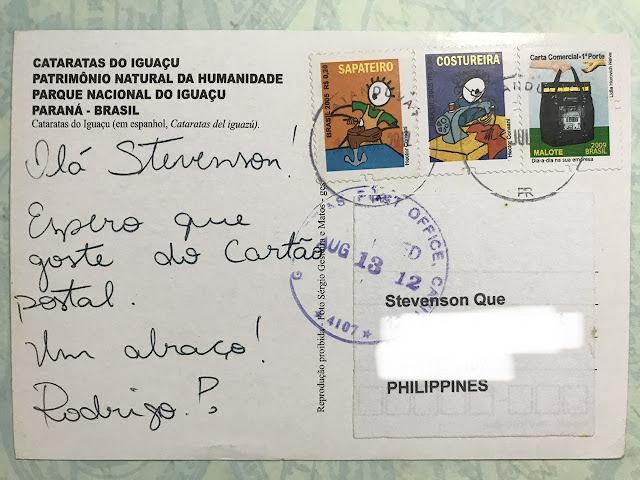 CATARATAS DO IGUAÇU
PATRIMÔNIO NATURAL DA HUMANIDADE
PARQUE NACIONAL DO IGUAÇU
PARANÁ - BRASIL
Cataratas do Iguaçu (em espanhol, Cataratas del iguazú).
Olá Stevenson!
Espero que
goste do Cartão
postal.
Um abraço!
Rodrigo P.
Reprodução proibida - Foto Sérgio
SAPATEIRO
BRASIL 2005 R$ 0,20
COSTUREIRA
Carta Comercial-1º Porte
MALOTE
2009
BRASIL
Dia-a-dia na sua empresa
PR
POST OFFICE,
AUG 13 12
4107
Stevenson Que
PHILIPPINES